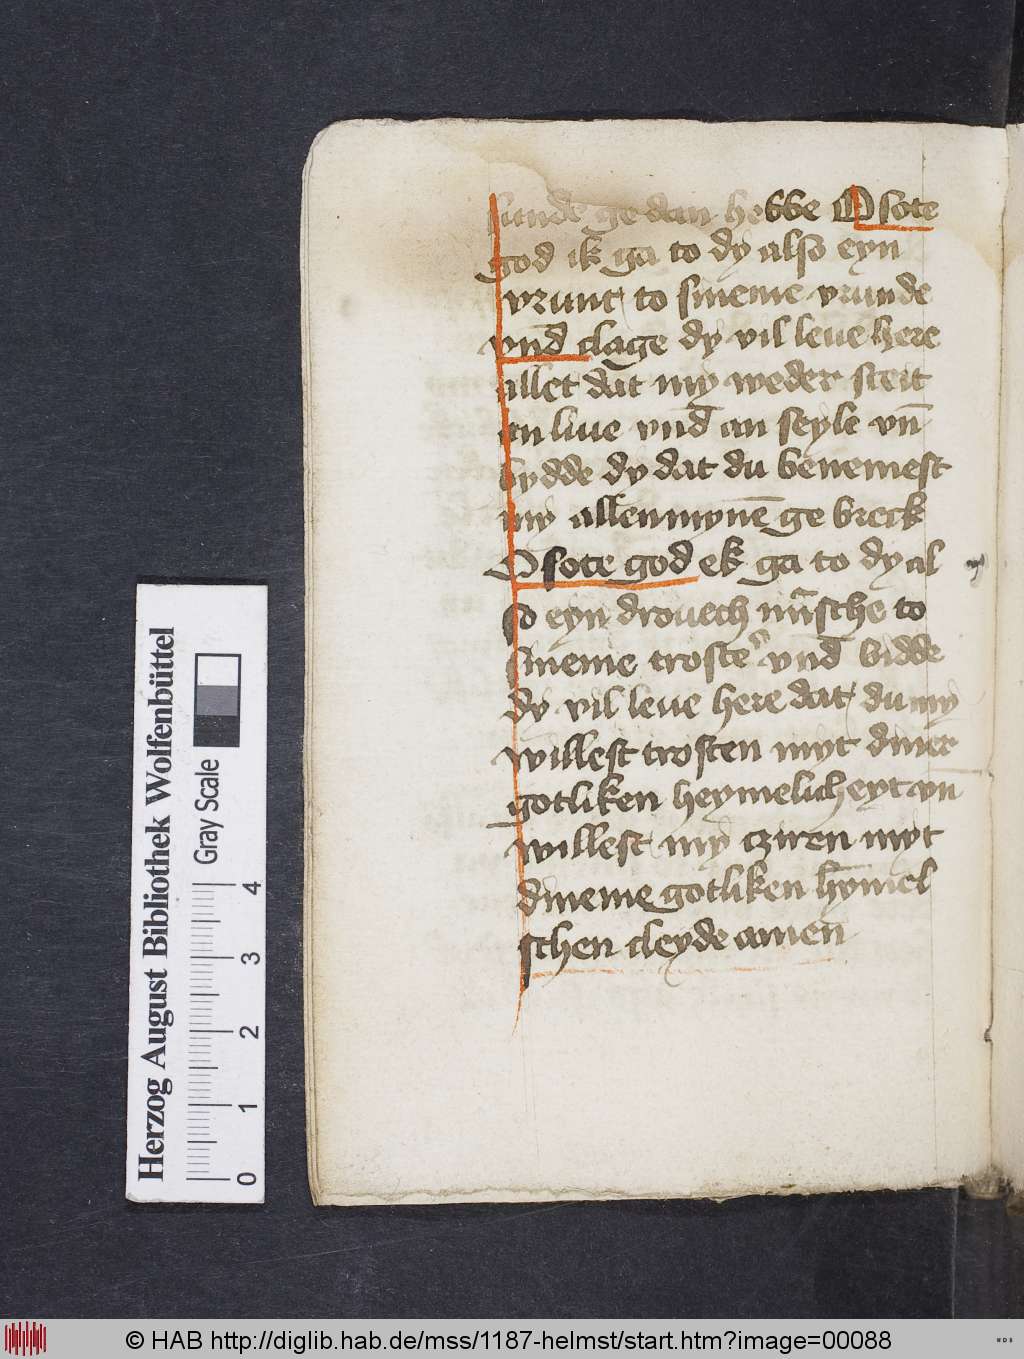 sunde ge dan hebbe O sote
god ik ga to dy also eyn
vrunt to sineme vrunde
vnd̄ clage dy vil leue here
allet dat my weder steit
an liue vnd̄ an seyle vn̄
bydde dy dat du benemest
my allen mynē ge breck
O sote god ek ga to dy al
so eyn drouech mīsche to
sineme troste vnd̄ bidde
dy vil leue here dat du my
willest trosten myt diner
gotliken heymelicheyt vn̄
willest my cziren myt
dineme gotliken hȳmel
schen cleyde amen
Herzog August Bibliothek Wolfenbüttel
Gray Scale
0 1 2 3 4
© HAB http://diglib.hab.de/mss/1187-helmst/start.htm?image=00088